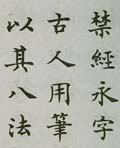 禁經永字
古人用筆
以其八法